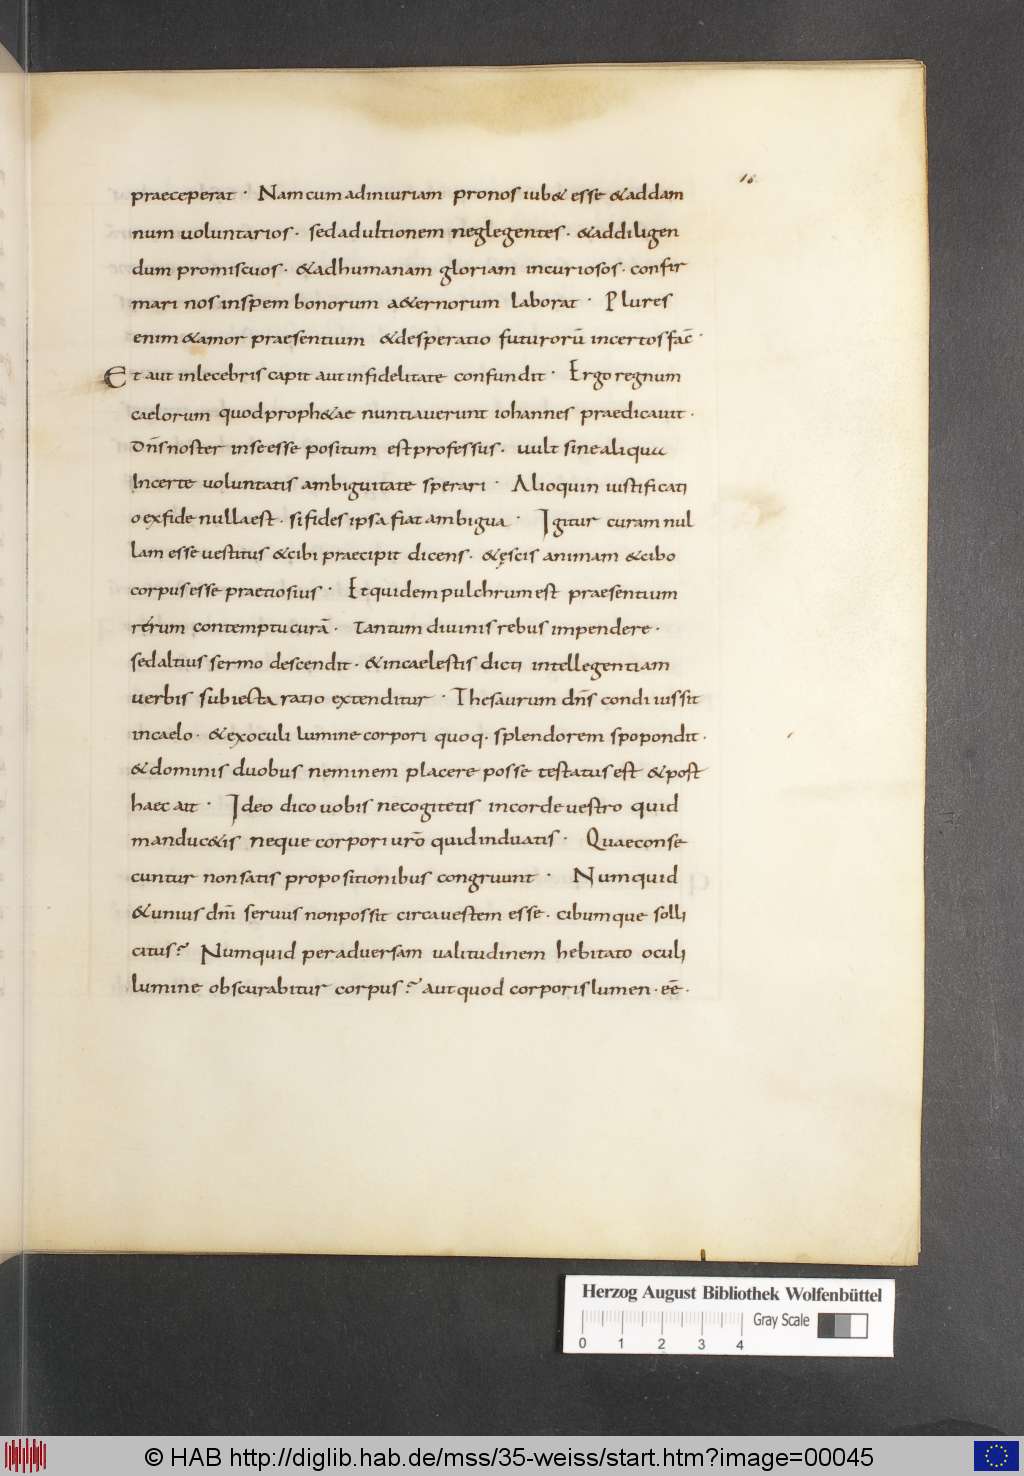 praeceperat · Nam cum ad iniuriam pronos iub& esse & ad dam
num uoluntarios · sed ad ultionem neglegentes · & ad diligen
dum promiscuos · & ad humanam gloriam incuriosos · confir
mari nos in spem bonorum a&ernorum laborat · Plures
enim & amor praesentium & desperatio futurorū incertos fac̄ ·
Et aut inlecebris capit aut infidelitate confundit · Ergo regnum
caelorum quod proph&ae nuntiauerunt iohannes praedicauit ·
Dn̄s noster in se esse positum est professus · uult sine aliqua
Incerte uoluntatis ambiguitate sperari · Alioquin iustificati
o ex fide nulla est · si fides ipsa fiat ambigua · Igitur curam nul
lam esse uestitus & cibi praecipit dicens · & ęscis animam & cibo
corpus esse praetiosius · Et quidem pulchrum est praesentium
rerum contemptu curā · tantum diuinis rebus impendere ·
sed altius sermo descendit · & in caelestis dicti intellegentiam
uerbis subiecta ratio extenditur · Thesaurum dn̄s condi iussit
in caelo · & ex oculi lumine corpori quoq· splendorem spopondit ·
& dominis duobus neminem placere posse testatus est & post
haec ait · Ideo dico uobis ne cogitetis in corde uestro quid
manduc&is neque corpori ur̄o quid induatis · Quae conse
cuntur non satis propositionibus congruunt · Numquid
& unius dn̄i seruus non possit circa uestem esse · cibumque solli
citus? Numquid per aduersam ualitudinem hebitato oculi
lumine obscurabitur corpus? aut quod corporis lumen · eē ·
Herzog August Bibliothek Wolfenbüttel
Gray Scale
0 1 2 3 4
© HAB http://diglib.hab.de/mss/35-weiss/start.htm?image=00045